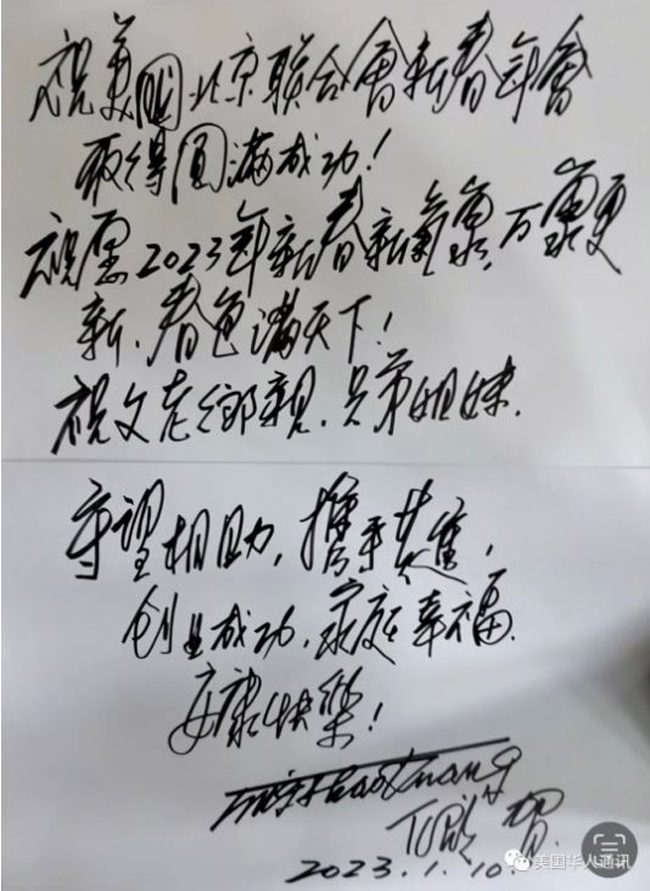 祝美國北京聯合會新春年會
取得圓满成功!
祝愿2023年新春新氣象,万象更
新、春色满天下!
祝父老鄉親、兄弟姐妹、
守望相助,携手共進,
创业成功,家庭幸福、
安康快樂!
贺
2023.1.10.
美国华人通讯